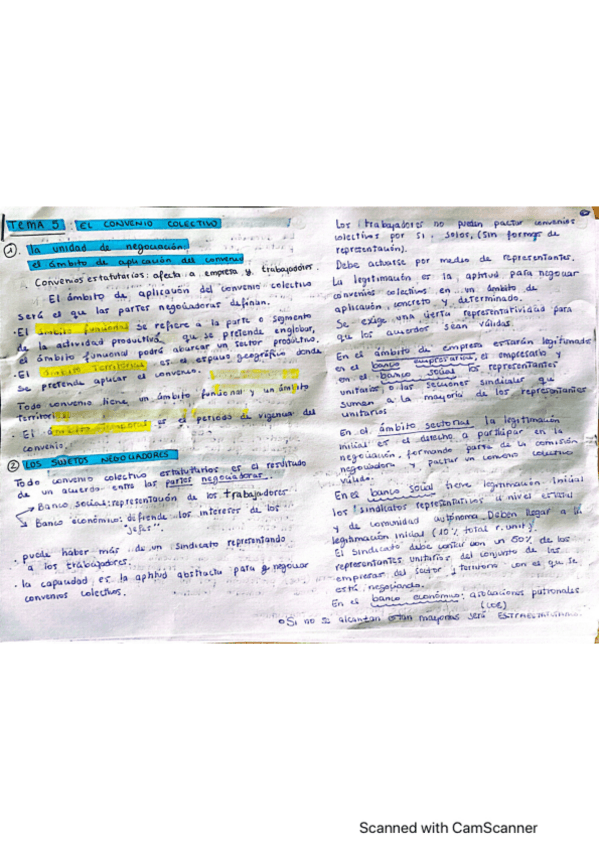 TEMA 5 EL CONVENIO COLECTIVO
1. la unidad de negociación:
el ámbito de aplicación del convenio
Convenios estatutarios: afecta a empresa y trabajadores.
El ámbito de aplicación del convenio colectivo
será el que las partes negociadoras definan.
· El ámbito funcional se refiere a la parte o segmento
de la actividad productiva, que se pretende englobar,
el ámbito funcional podrá abarcar un sector productivo.
· El ámbito territorial es el espacio geográfico donde
se pretende aplicar el convenio.
Todo convenio tiene un ámbito funcional y un ámbito
territorial.
· El ámbito temporal es el periodo de vigencia del
convenio.
2 LOS SUJETOS NEGOCIADORES
Todo convenio colectivo estatutario es el resultado
de un acuerdo entre las partes negociadoras.
Banco social: representación de los trabajadores
Banco económico: difiende los intereses de los
"jefes".
· puede haber más de un sindicato representando
a los trabajadores.
· la capacidad es la aptitud abstracta para negociar
convenios colectivos.
Los trabajadores no pueden pactar convenios
colectivos por si solos, (sin formas de
representación).
Debe actuarse por medio de representantes.
La legitimación es la aptitud para negociar
convenios colectivos en un ámbito de
aplicación, concreto y determinado.
Se exige una cierta representatividad para
que los acuerdos sean válidos.
En el ámbito de empresa estarán legitimados
en el banco empresarial, el empresario y
en el banco social los representantes
unitarios o las secciones sindicales que
sumen a la mayoría de los representantes
unitarios.
En el ámbito sectorial la legitimación
inicial es el derecho a participar en la
negociación, formando parte de la comisión
negociadora y pactar un convenio colectivo
válido.
En el banco social tiene legitimación inicial
los sindicatos representativos a nivel estatal
y de comunidad autónoma. Deben llegar a la
legitimación inicial (10% total r. unit).
El sindicato debe contar con un 50% de los
representantes unitarios del conjunto de las
empresas del sector y territorio con el que se
está negociando.
En el banco económico: asociaciones patronales
Si no se alcanzan estas mayorías será
Scanned with CamScanner